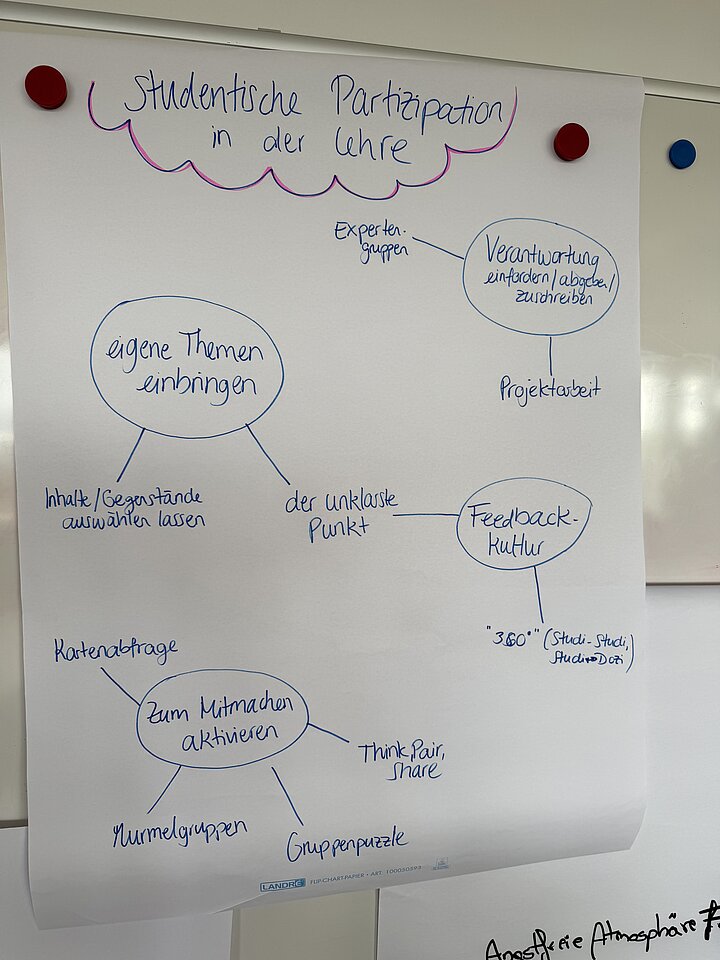 Studentische Partizipation
in der Lehre
Experten-
gruppen
Verantwortung
einfordern/abgeben/
zuschreiben
Projektarbeit
eigene Themen
einbringen
Inhalte/Gegenstände
auswählen lassen
der unklarste
Punkt
Feedback-
kultur
"360°" (Studi-Studi,
Studi↔Dozi)
Kartenabfrage
Zum Mitmachen
aktivieren
Think, Pair,
Share
Murmelgruppen
Gruppenpuzzle
LANDRÉ FLIP-CHART-PAPIER • ART. 100050593
Angstfreie Atmosphäre